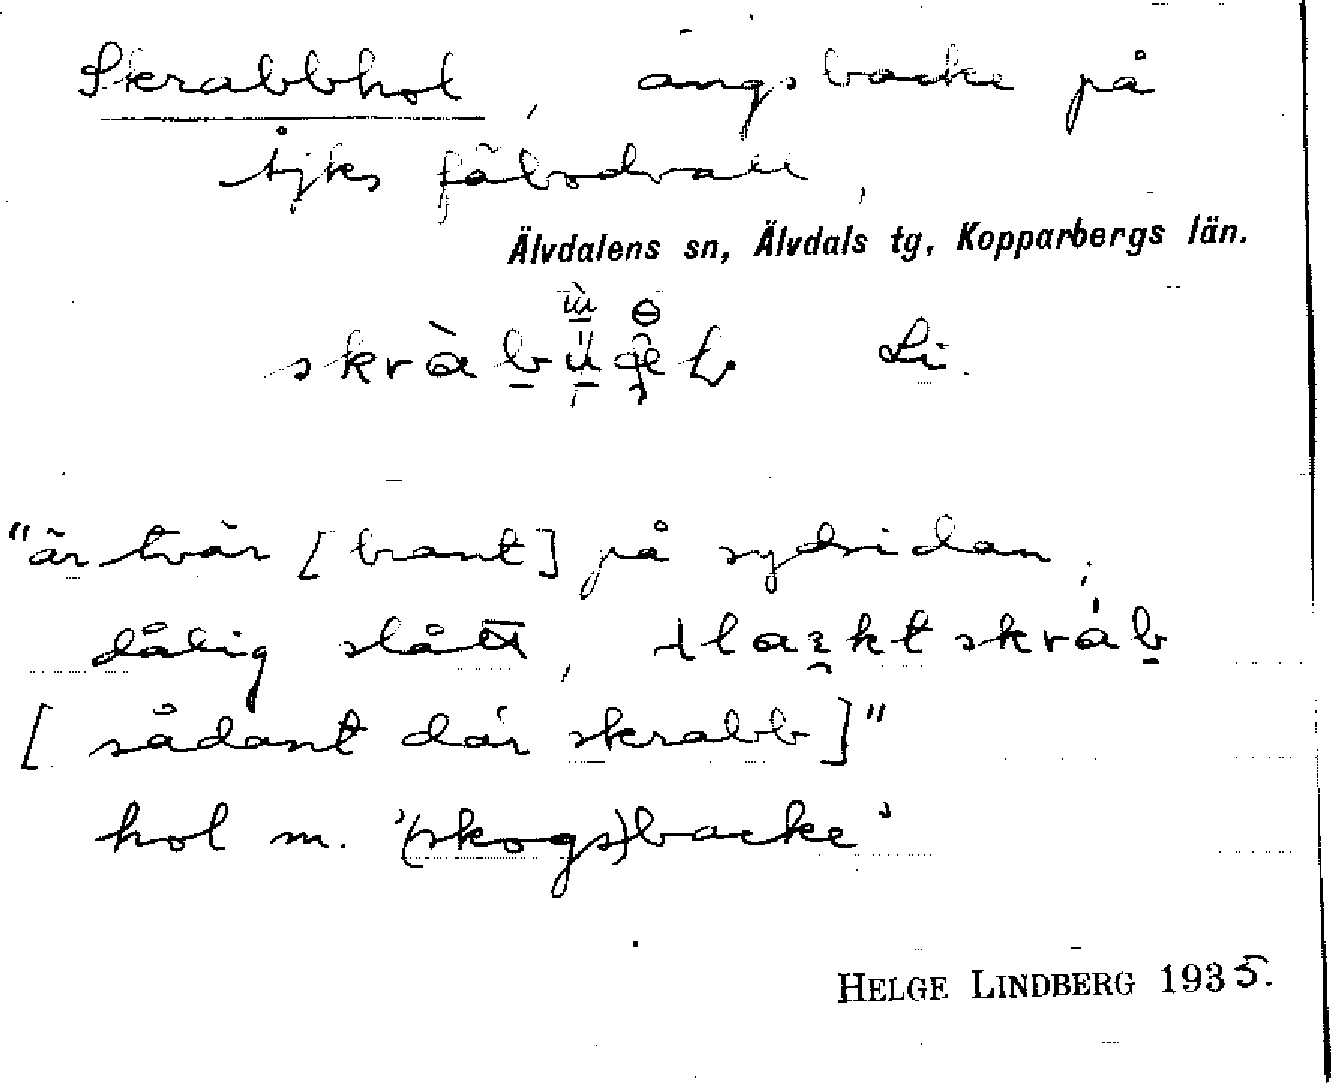 Skrabbhol, ängsbacke på
Åjks fäbodvall,
Älvdalens sn, Älvdals tg, Kopparbergs län.
Li.
"är tvär [brant] på sydsidan;
dålig slått, skràb
[sådant där skrabb]"
hol m. '(skogs)backe'
HELGE LINDBERG 1935.